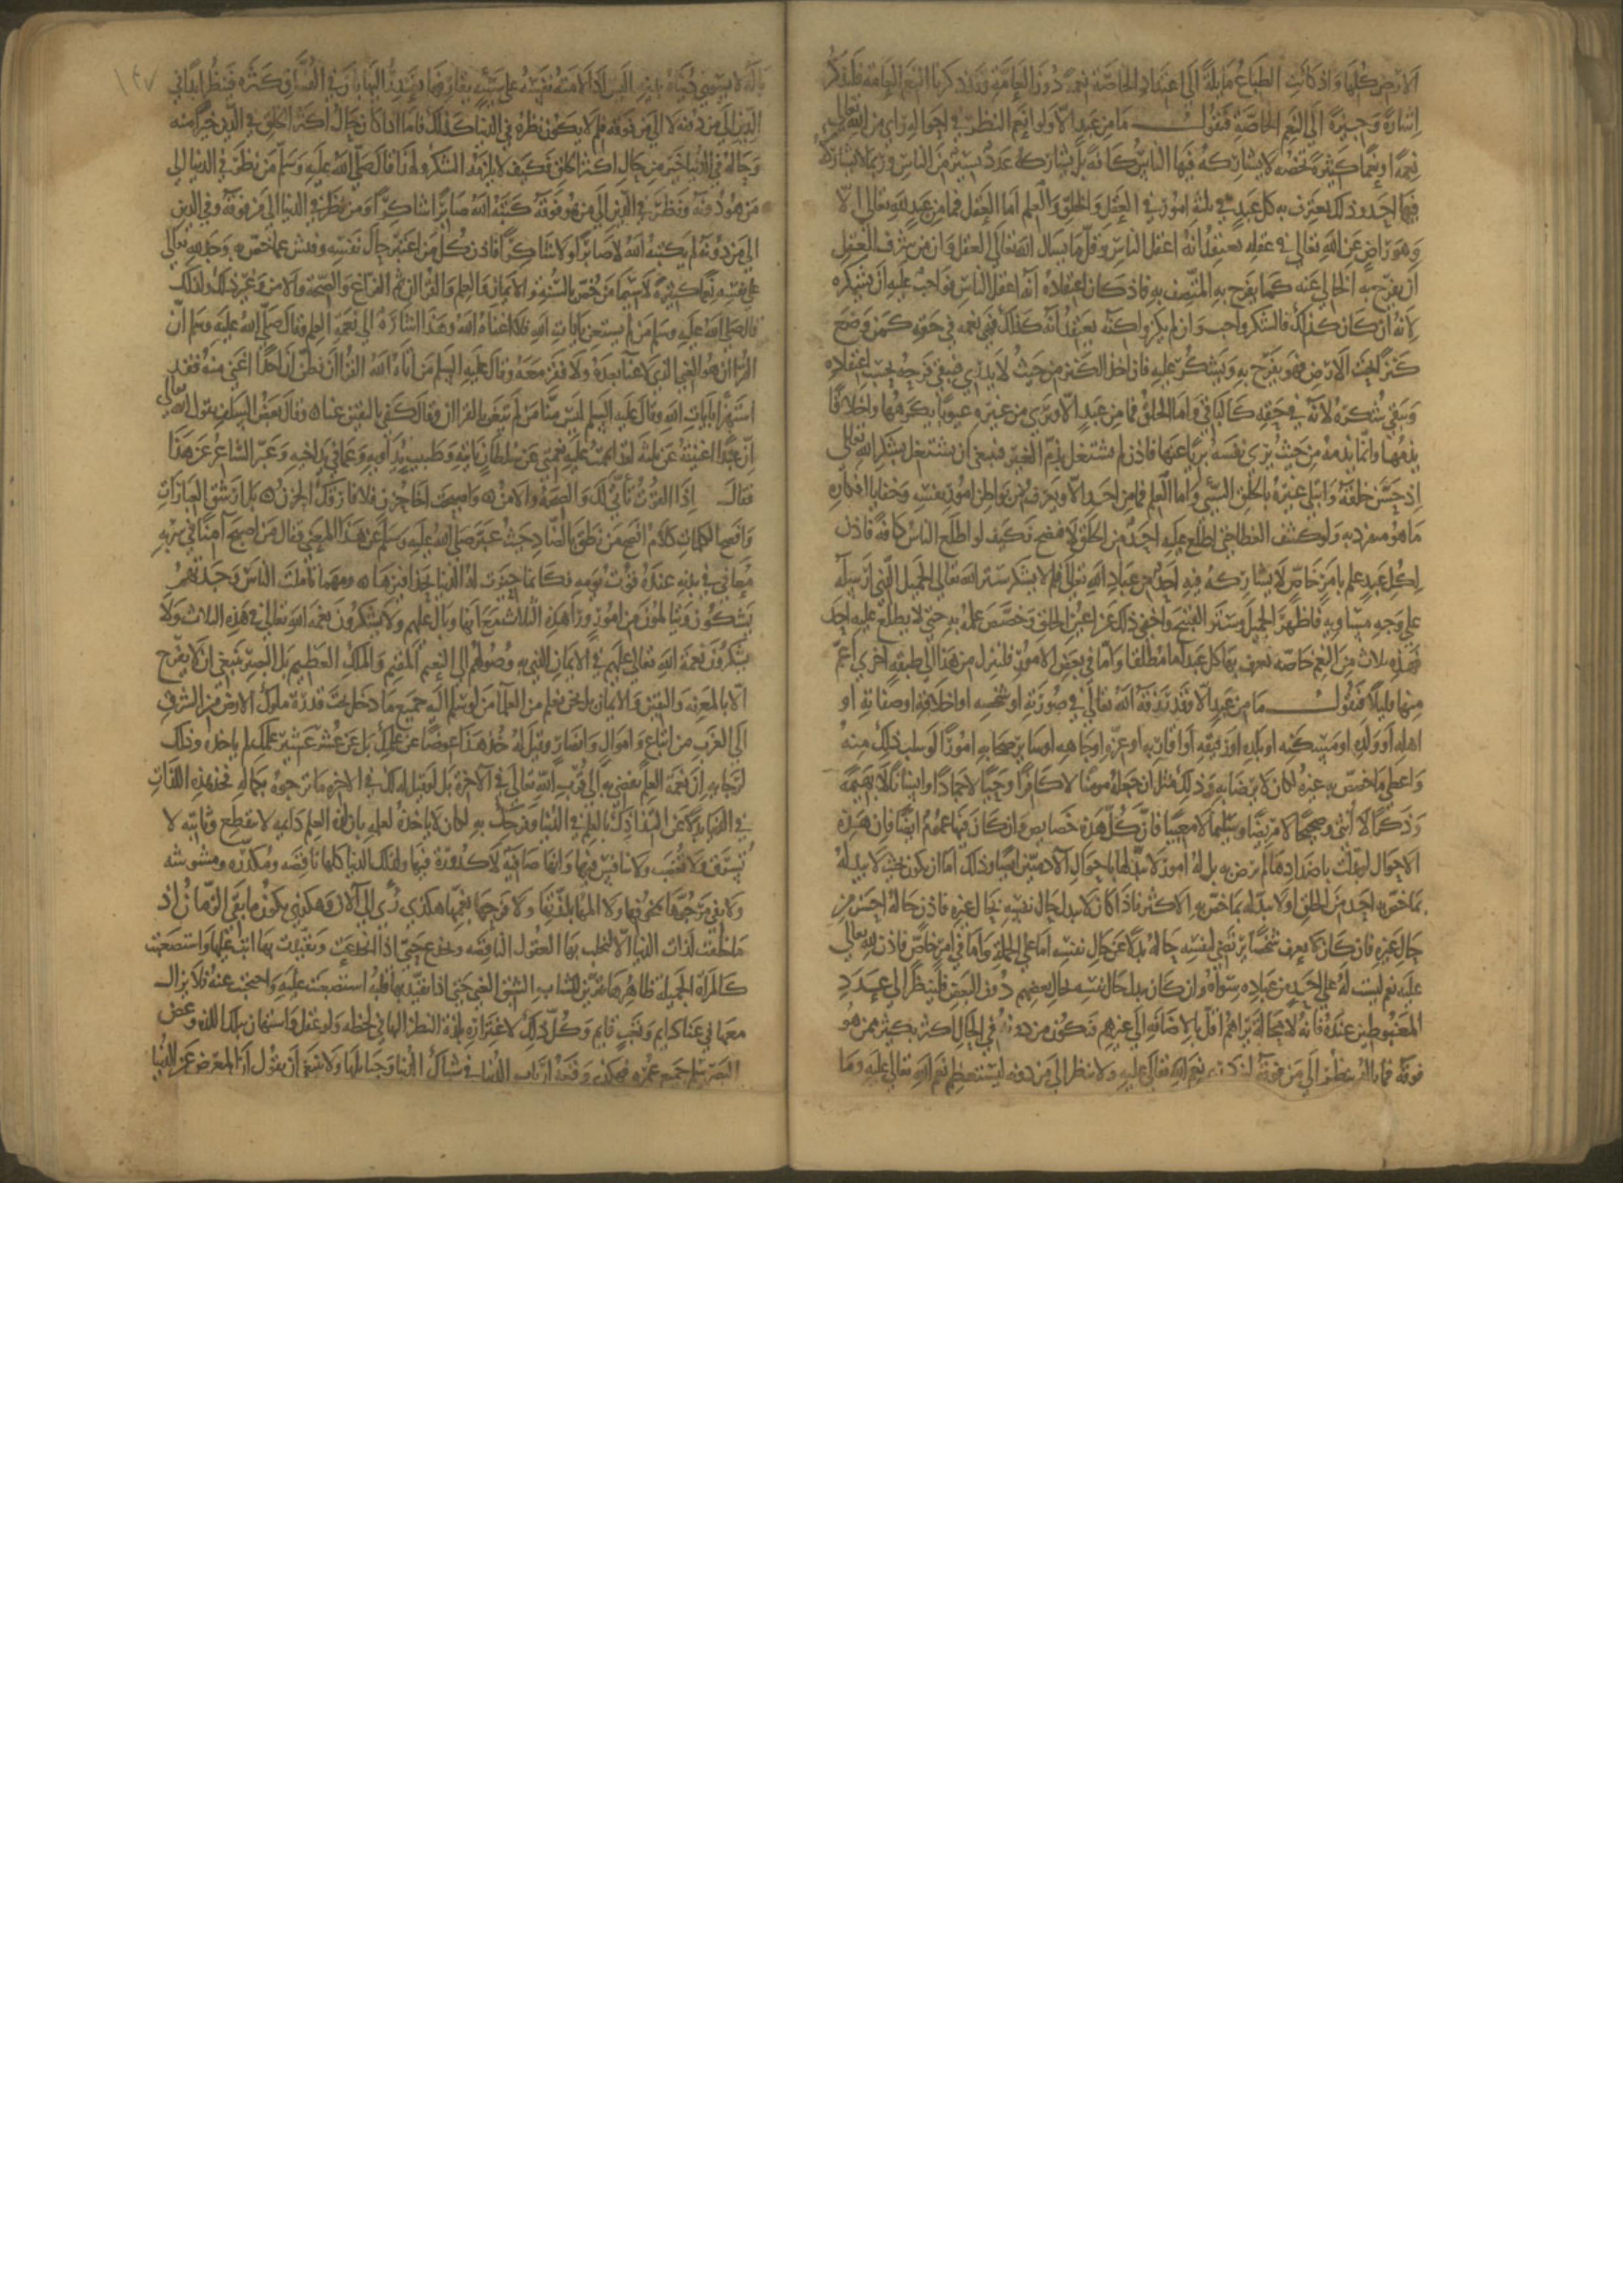 الارض كلها واذ كانت الطباع مايلة الى اعتداد الخاصة نعمة دون العامة وقد ذكرنا النعم العامة فلنذكر
اشارة وجيزة الى النعم الخاصة فنقول ما من عبد الا ولو انعم النظر في احواله راى من الله تعالى
نعمة او نعما كثيرة تخصه لا يشاركه فيها الناس كافة بل يشاركه عدد يسير من الناس وربما لا يشاركه
فيها احد وذلك يعترف به كل عبد في ثلثة امور في العقل والخلق والعلم اما العقل فما من عبد لله تعالى الا
وهو راض عن الله تعالى في عقله يعتقد انه اعقل الناس وقل ما يسال الله تعالى العقل وان من شرف العقل
ان يفرح به الخالي عنه كما يفرح به المتصف به فاذ كان اعتقاده انه اعقل الناس فواجب عليه ان يشكره
لانه ان كان كذلك فالشكر واجب وان لم يكن ولكنه يعتقد انه كذلك فهي نعمة في حقه كمن وضع
كنزا تحت الارض فهو يفرح به ويشكر عليه فان اخذ الكنز من حيث لا يدري فيبقى فرحه بحسب اعتقاده
ويبقى شكره لانه في حقه كالباقي واما الخلق فما من عبد الا ويرى من غيره عيوبا يكرهها واخلاقا
يذمها وانما يذمها من حيث يرى نفسه بريا عنها فاذن لم يشتغل بذم الغير فينبغي ان يشتغل بشكر الله تعالى
اذ حسن خلقه وابتلى غيره بالخلق السيئ واما العلم فما من احد الا ويعرف من بواطن امور نفسه وخفايا افكاره
ما هو منفرد به ولو كشف الغطا حتى اطلع عليه احد من الخلق لافتضح فكيف لو اطلع الناس كافة فاذن
لكل عبد علم بامر خاص لا يشاركه فيه احد من عباد الله تعالى فلم لا يشكر ستر الله تعالى الجميل الذي ارسله
على وجه مساويه فاظهر الجميل وستر القبيح واخفى ذلك عن اعين الخلق وخصص علمه به حتى لا يطلع عليه احد
فهذه ثلاث من النعم خاصة يعترف بها كل عبد اما مطلقا واما في بعض الامور فلننزل من هذا الى طبقة اخرى اعم
منها قليلا فنقول ما من عبد الا وقد رزقه الله تعالى في صورته او شخصه او اخلاقه او صفاته او
اهله او ولده او مسكنه او بلده او رفيقه او اقاربه او عزه او جاهه او ساير محابه امورا لو سلب ذلك منه
واعطي ما خصص به غيره لكان لا يرضى به وذلك مثل ان جعله مومنا لا كافرا وحيا لا جمادا وانسانا لا بهيمة
وذكرا لا انثى وصحيحا لا مريضا وسليما لا معيبا فان كل هذه خصايص وان كان فيها عموم ايضا فان هذه
الاحوال لو بدلت باضدادها لم يرض به بل له امور لا يبدلها باحوال الادميين ايضا وذلك اما ان يكون بحيث لا يبدله
بما خص به احد من الخلق او لا يبدله بما خص به الاكثر فاذا كان لا يبدل حال نفسه بحال غيره فاذن حاله احسن من
حال غيره فاذ كان لا يعرف شخصا يرتضي لنفسه حاله بدلا عن حال نفسه اما على الجملة واما في امر خاص فاذن لله تعالى
عليه نعم ليست له على احد من عباده سواه وان كان يبدل حال نفسه بحال بعضهم دون البعض فلينظر الى عدد
المغبوطين عنده فانه لا محالة يراهم اقل بالاضافة الى غيرهم فتكون من دونه في الحال اكثر بكثير ممن هو
فوقه فما باله ينظر الى من فوقه ليزدري نعم الله تعالى عليه ولا ينظر الى من دونه ليستعظم نعم الله تعالى عليه وما
باله لا يسوي دنياه بدينه اليس اذا لامته نفسه على سيئة يقارفها يعتذر اليها بان في الفساق كثرة فينظر ابدا في
الدين الى من دونه لا الى من فوقه فلم لا يكون نظره في الدنيا كذلك فاما اذا كان حال اكثر الخلق في الدين خيرا منه
وحاله في الدنيا خير من حال اكثر الخلق فكيف لا يلزمه الشكر ولهذا قال صلى الله عليه وسلم من نظر في الدنيا الى
من هو دونه ونظر في الدين الى من هو فوقه كتبه الله صابرا شاكرا ومن نظر في الدنيا الى من فوقه وفي الدين
الى من دونه لم يكتبه الله لا صابرا ولا شاكرا فاذن كل من اعتبر حال نفسه وفتش عما خص به وجد لله تعالى
على نفسه نعما كثيرة لا سيما من خص بالسنة والايمان والعلم والقران ثم الفراغ والصحة والامن وغير ذلك ولذلك
قال صلى الله عليه وسلم من لم يستغن بايات الله فلا اغناه الله وهذا اشارة الى نعمة العلم وقال صلى الله عليه وسلم ان
القران هو الغني الذي لا غنا بعده ولا فقر معه وقال عليه السلم من اتاه الله القران فظن ان احدا اغنى منه فقد
استهزا بايات الله وقال عليه السلم ليس منا من لم يتغن بالقران وقال كفى باليقين غنا وقال بعض السلف يقول الله تعالى
ان عبدا اغنيته عن ثلثة لقد اتممت عليه نعمتي عن سلطان ياتيه وطبيب يداويه وعما في يد اخيه وعبر الشاعر عن هذا
فقال اذا القوت تاتى لك والصحة والامن واصبحت اخا حزن فلا فارقك الحزن بل ارشق العبارات
وافصح الكلمات كلام افصح من نطق بالضاد حيث عبر صلى الله عليه وسلم عن هذا المعنى فقال من اصبح امنا في سربه
معافى في بدنه عنده قوت يومه فكانما حيزت له الدنيا بحذافيرها ومهما تاملت الناس وجدتهم
يشكون ويتالمون من امور ورا هذه الثلاث مع انها وبال عليهم ولا يشكرون نعمة الله تعالى في هذه الثلاث ولا
يشكرون نعمة الله تعالى عليهم في الايمان الذي به وصولهم الى النعيم المقيم والملك العظيم بل البصير ينبغي ان لا يفرح
الا بالمعرفة واليقين والايمان بل نحن نعلم من العلما من لو سلم اليه جميع ما دخل تحت قدرة ملوك الارض من الشرق
الى الغرب من اتباع واموال وانصار وقيل له خذ هذا عوضا عن علمك بل عن عشر عشير علمك لم ياخذه وذلك
لرجايه ان نعمة العلم تفضي به الى قرب الله تعالى في الاخرة بل لو قيل له لك في الاخرة ما ترجوه بكماله فخذ هذه اللذات
في الدنيا بدلا عن التذاذك بالعلم في الدنيا وفرحك به لكان لا ياخذه لعلمه بان لذة العلم دايمة لا تنقطع وثابتة لا
تسرق ولا تغصب ولا ينافس فيها وانها صافية لا كدورة فيها ولذات الدنيا كلها ناقصة ومكدرة ومشوشة
ولا يفي مرجوها بمخوفها ولا المها بلذتها ولا فرحها بغمها هكذى رئي الى الان وهكذى يكون ما بقي الزمان اذ
ما خلقت لذات الدنيا الا لتجلب بها العقول الناقصة وتخدع حتى اذا انخدعت وتقيدت بها ابت عليها واستصعبت
كالمراة الجميلة ظاهرها تتزين للشاب الشبق الغني حتى اذا تقيد بها قلبه استصعبت عليه واحتجبت عنه فلا يزال
معها في عنا دايم وتعب قايم وكل ذلك لاغتراره بلذة النظر اليها في لحظة ولو عقل واستهان بتلك اللذة وغض
البصر سلم جميع عمره فهكذى وقعت ارباب الدنيا في شباك الدنيا وحبايلها ولا ينبغي ان يقول ان المعرض عن الدنيا